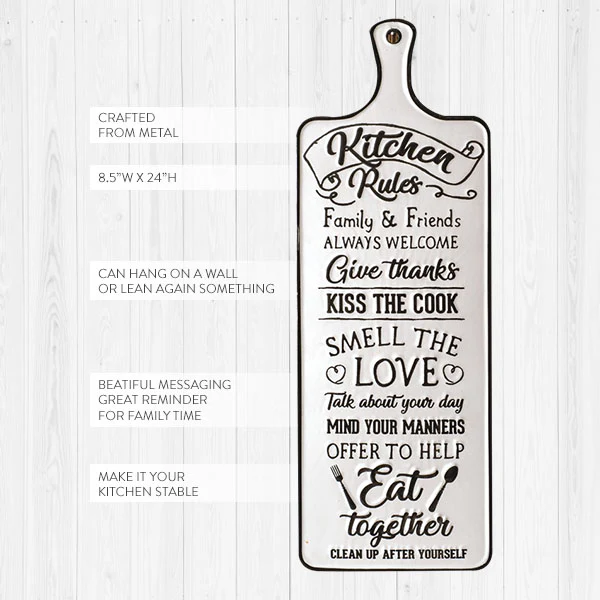 CRAFTED
FROM METAL
8.5”W X 24”H
CAN HANG ON A WALL
OR LEAN AGAIN SOMETHING
BEATIFUL MESSAGING
GREAT REMINDER
FOR FAMILY TIME
MAKE IT YOUR
KITCHEN STABLE
Kitchen
Rules
Family & Friends
ALWAYS WELCOME
Give thanks
KISS THE COOK
SMELL THE
LOVE
Talk about your day
MIND YOUR MANNERS
OFFER TO HELP
Eat
together
CLEAN UP AFTER YOURSELF